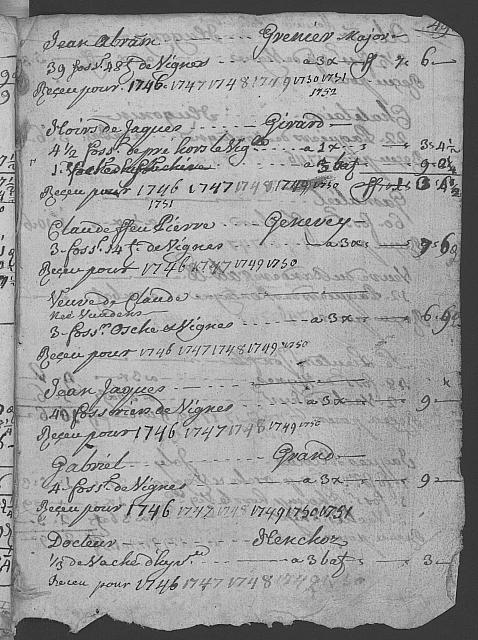 Jean Abram - - - - Grenier Major
39 foss. 48 t. de Vignes - - - a 3x ff 7 6
Reçeu pour 1746 1747 1748 1749 1750 1751
1752
Hoirs de Jaques - - - Girard
4 1/2 foss. de pré hors le Vig - - a 1x - - 3 4 1/2
1
Reçeu pour 1746 1747 1748 1749 1750
1751
Claude ffeu Pierre - - - Genevey
3 foss. 14 t. de Vignes - - - a 3x - - 7 6
Reçeu pour 1746 1747 1749 1750
Veuve de Claude - - -
3 foss. Osche et Vignes - - - a 3x - - 6 9
Reçeu pour 1746 1747 1748 1749 1750
Jean Jaques - - -
4 foss. de Vignes - - - a 3x - - 9
Reçeu pour 1746 1747 1748 1749 1750
Gabriel - - - Grand
4 foss. de Vignes - - - a 3x - - 9
Reçeu pour 1746 1747 1748 1749 1750 1751
Docteur - - - Henchoz
1/3 de Vache - - - a 3 batz - - 3
Reçeu pour 1746 1747 1748 1749 1750